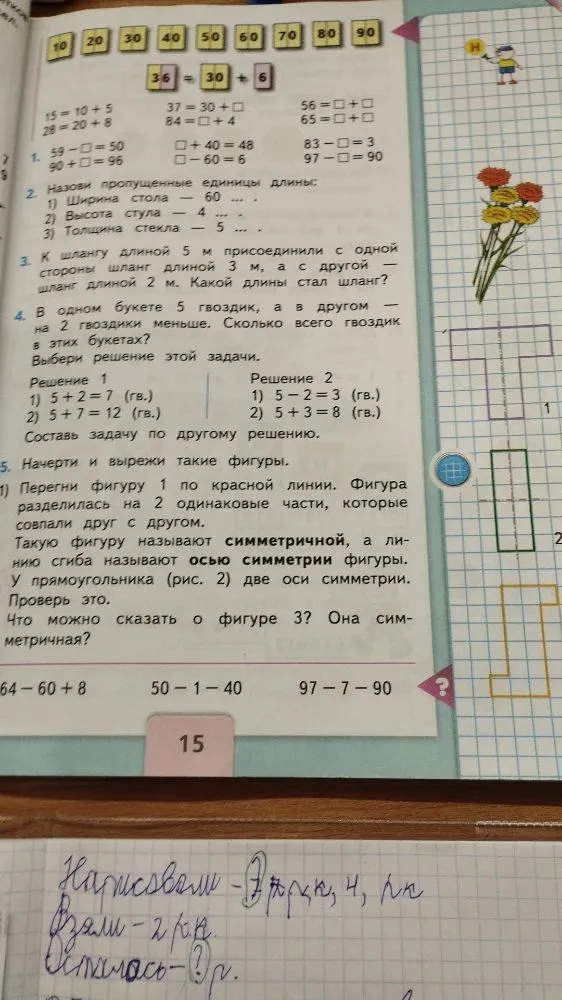 10 20 30 40 50 60 70 80 90
36 = 30 + 6
15 = 10 + 5 37 = 30 + □ 56 = □ + □
28 = 20 + 8 84 = □ + 4 65 = □ + □
1. 59 − □ = 50 □ + 40 = 48 83 − □ = 3
90 + □ = 96 □ − 60 = 6 97 − □ = 90
2. Назови пропущенные единицы длины:
1) Ширина стола — 60 ... .
2) Высота стула — 4 ... .
3) Толщина стекла — 5 ... .
3. К шлангу длиной 5 м присоединили с одной
стороны шланг длиной 3 м, а с другой —
шланг длиной 2 м. Какой длины стал шланг?
4. В одном букете 5 гвоздик, а в другом —
на 2 гвоздики меньше. Сколько всего гвоздик
в этих букетах?
Выбери решение этой задачи.
Решение 1 Решение 2
1) 5 + 2 = 7 (гв.) 1) 5 − 2 = 3 (гв.)
2) 5 + 7 = 12 (гв.) 2) 5 + 3 = 8 (гв.)
Составь задачу по другому решению.
5. Начерти и вырежи такие фигуры.
1) Перегни фигуру 1 по красной линии. Фигура
разделилась на 2 одинаковые части, которые
совпали друг с другом.
Такую фигуру называют симметричной, а ли-
нию сгиба называют осью симметрии фигуры.
У прямоугольника (рис. 2) две оси симметрии.
Проверь это.
Что можно сказать о фигуре 3? Она сим-
метричная?
64 − 60 + 8 50 − 1 − 40 97 − 7 − 90
?
15
Н
1
2
Нарисовали -
Взяли - 2 р.к.
Осталось - ? р.